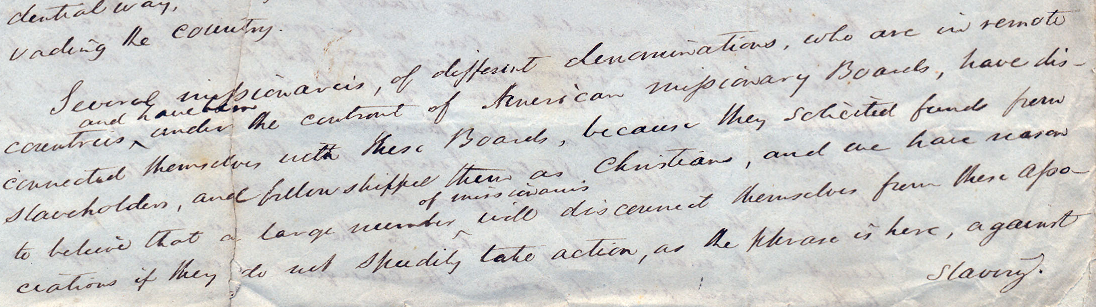 dential way,
vading the country.
Several missionaries, of different denominations, who are in remote
and have been
countries, ^ under the control of American missionary Boards, have dis-
connected themselves with these Boards, because they solicited funds from
slaveholders, and fellowshipped them as Christians, and we have reason
of missionaries
to believe that a large number ^ will disconnect themselves from these asso-
ciations if they do not speedily take action, as the phrase is here, against
slavery.